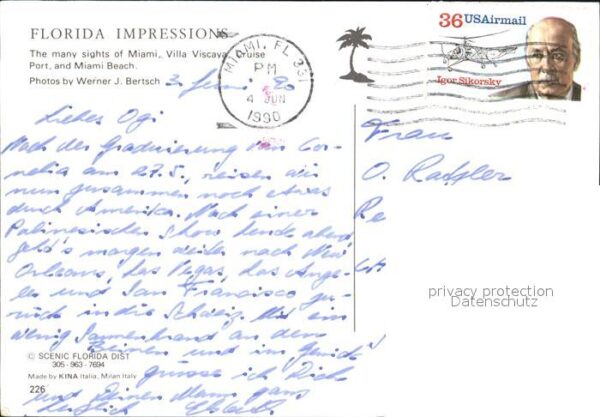 FLORIDA IMPRESSIONS
The many sights of Miami, Villa Viscaya, Cruise
Port, and Miami Beach.
Photos by Werner J. Bertsch
3. Juni 90
MIAMI, FL 331
PM
4 JUN
1990
36 USAirmail
Igor Sikorsky
Liebes Ogi
Nach der Graduierung von Cor-
nelia am 27.5., reisen wir
nun zusammen noch etwas
durch Amerika. Nach einer
Polinesischen Show heute abend
geht's morgen weiter nach New
Orleans, Las Vegas, Los Ange-
les und San Francisco zu-
rück in die Schweiz. Mit ein
wenig Sonnenbrand an den
Beinen und im Genick
grüsse ich Dich
und Deinen Mann ganz
herzlich
Frau
O.
Re
privacy protection
Datenschutz
© SCENIC FLORIDA DIST
305 - 963 - 7694
Made by KINA Italia, Milan Italy
226